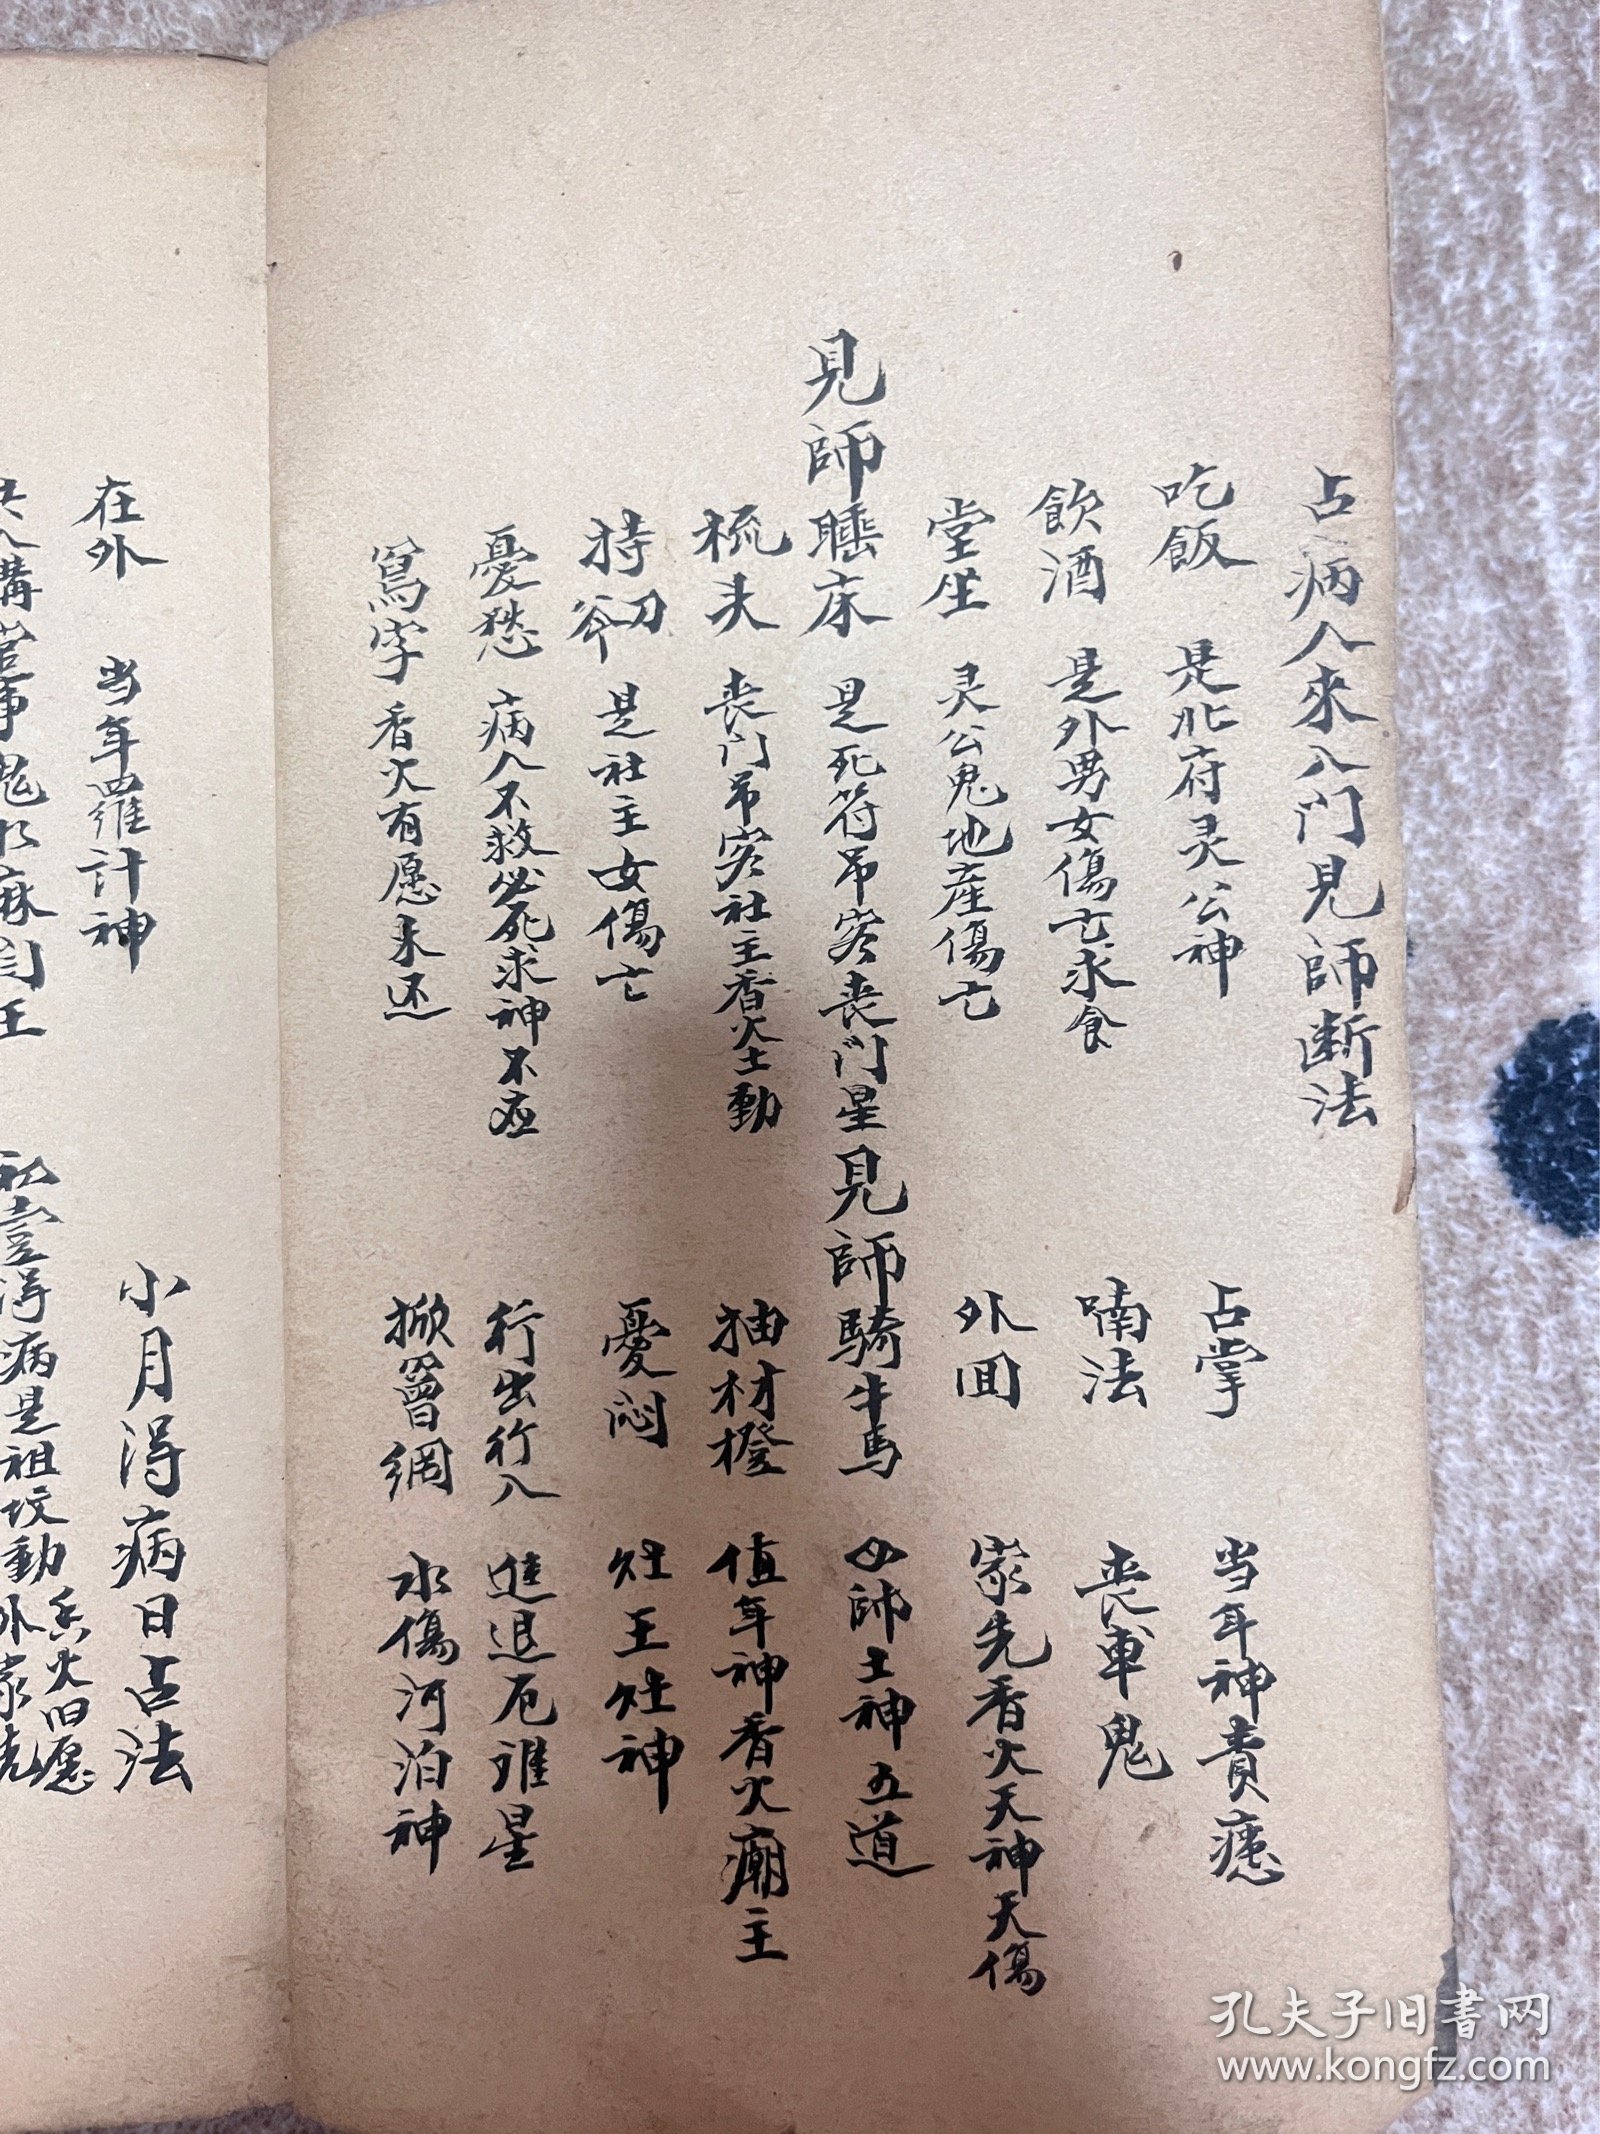 占病人來入門見師断法
吃飯 是北府灵公神
飲酒 是外男女傷亡求食
堂坐 灵公鬼地産傷亡
見師
睡床 是死符吊客丧門星
梳头 丧门吊客社主香火土動
持刀斧 是社主女傷亡
憂愁 病人不救必死求神不应
寫字 香火有愿未还
占掌 当年神責
喃法 丧車鬼
外囬 家先香火天神天傷
見師
騎牛馬 土神五道
抽材櫈 值年神香火廟主
憂悶 灶王灶神
行出行入 進退厄难星
掀罾網 水傷河泊神
小月得病日占法
在外 当年羅計神
得病是祖坟動
香火旧愿
孔夫子旧书网
www.kongfz.com